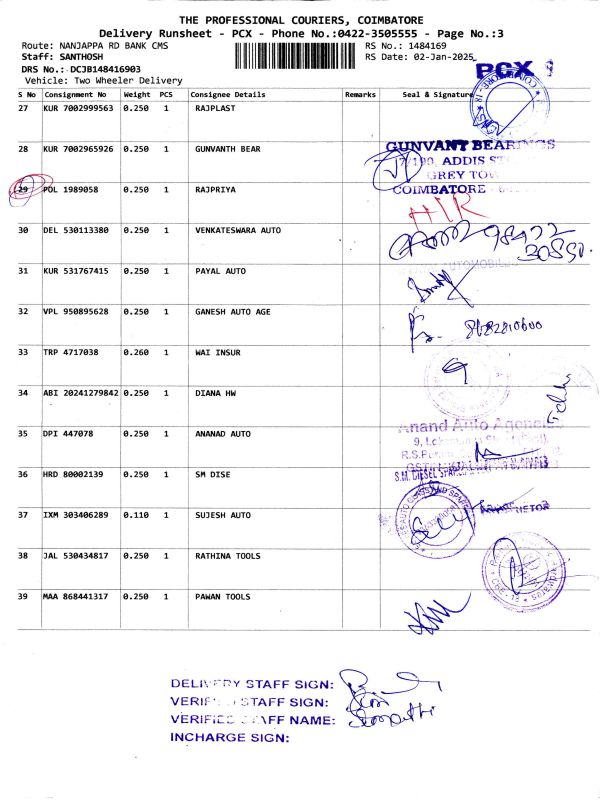 THE PROFESSIONAL COURIERS, COIMBATORE
Delivery Runsheet - PCX - Phone No.:0422-3505555 - Page No.:3
Route: NANJAPPA RD BANK CMS RS No.: 1484169
Staff: SANTHOSH RS Date: 02-Jan-2025
DRS No.:DCJB148416903
Vehicle: Two Wheeler Delivery
PCX
S No Consignment No Weight PCS Consignee Details Remarks Seal & Signature
27 KUR 7002999563 0.250 1 RAJPLAST
28 KUR 7002965926 0.250 1 GUNVANTH BEAR
GUNVANT BEARINGS
7/190, ADDIS
GREY TOW
COIMBATORE
29 POL 1989058 0.250 1 RAJPRIYA
30 DEL 530113380 0.250 1 VENKATESWARA AUTO
98422
30850
AUTOMOBIL
31 KUR 531767415 0.250 1 PAYAL AUTO
32 VPL 950895628 0.250 1 GANESH AUTO AGE
33 TRP 4717038 0.260 1 WAI INSUR
34 ABI 20241279842 0.250 1 DIANA HW
35 DPI 447078 0.250 1 ANANAD AUTO
Anand Auto Agencies
36 HRD 80002139 0.250 1 SM DISE
S.M. DIESEL
37 IXM 303406289 0.110 1 SUJESH AUTO
38 JAL 530434817 0.250 1 RATHINA TOOLS
39 MAA 868441317 0.250 1 PAWAN TOOLS
DELIVERY STAFF SIGN:
STAFF SIGN:
VERIFIED STAFF NAME:
INCHARGE SIGN: